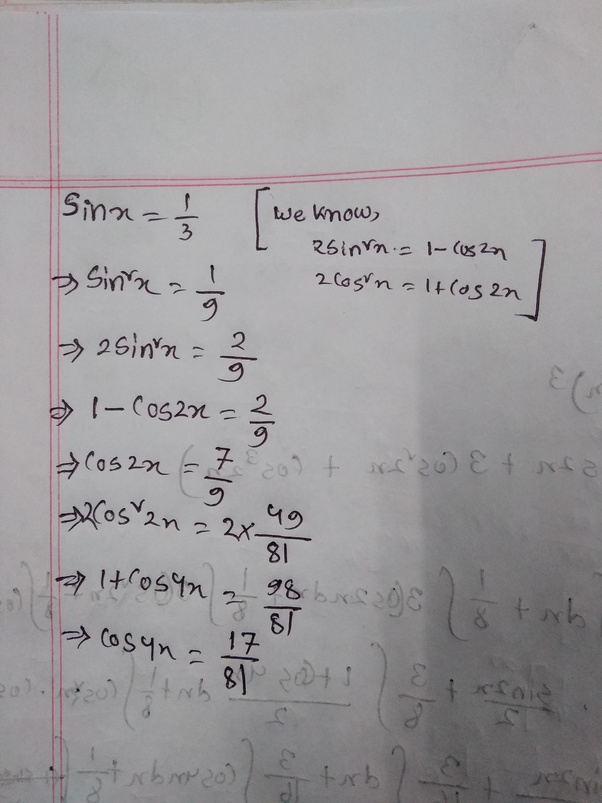 Sinx = 1/3 [We know,
2Sin²x = 1-Cos2x
2Cos²x = 1+Cos2x]
⇒ Sin²x = 1/9
⇒ 2Sin²x = 2/9
⇒ 1-Cos2x = 2/9
⇒ Cos2x = 7/9
⇒ 2Cos²2x = 2×49/81
⇒ 1+Cos4x = 98/81
⇒ Cos4x = 17/81